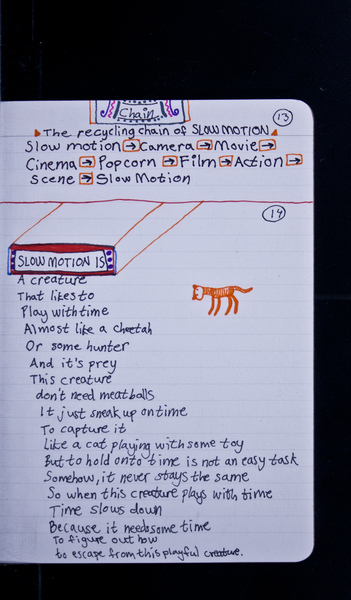 Chain
13
The recycling chain of SLOW MOTION
Slow motion → Camera → Movie →
Cinema → Popcorn → Film → Action →
Scene → Slow Motion
14
SLOW MOTION IS
A creature
That likes to
Play with time
Almost like a cheetah
Or some hunter
And it's prey
This creature
don't need meatballs
It just sneak up on time
To capture it
Like a cat playing with some toy
But to hold onto time is not an easy task
Somehow, it never stays the same
So when this creature plays with time
Time slows down
Because it needs some time
To figure out how
to escape from this playful creature.